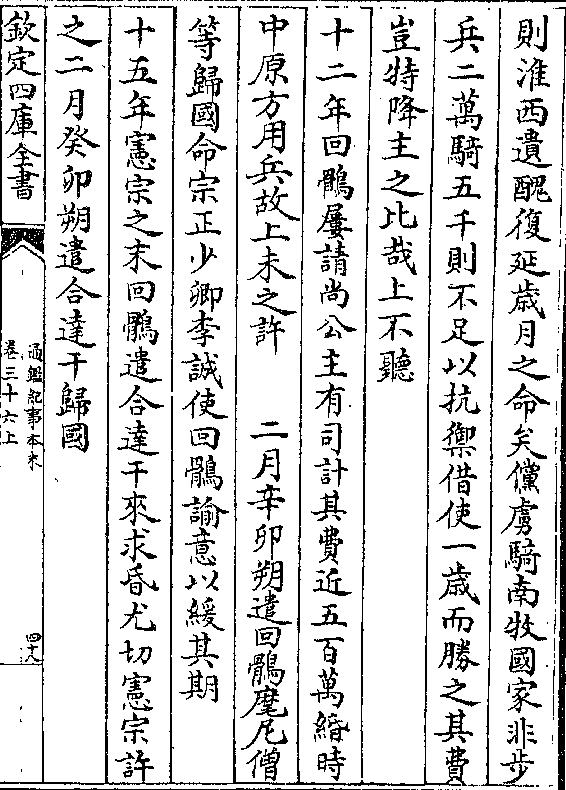 則淮西遺醜復延歲月之命矣儻虜騎南牧國家非步
兵二萬騎五千則不足以抗禦借使一歲而勝之其費
豈特降主之比哉上不聽
十二年回鶻屢請尚公主有司計其費近五百萬緡時
中原方用兵故上未之許　　二月辛卯朔遣回鶻麾尼僧
等歸國命宗正少卿李誠使回鶻諭意以緩其期
十五年憲宗之末回鶻遣合達干來求昏尤切憲宗許
之二月癸卯朔遣合達干歸國
欽定四庫全書
通鑑紀事本末
卷三十六上
四十八